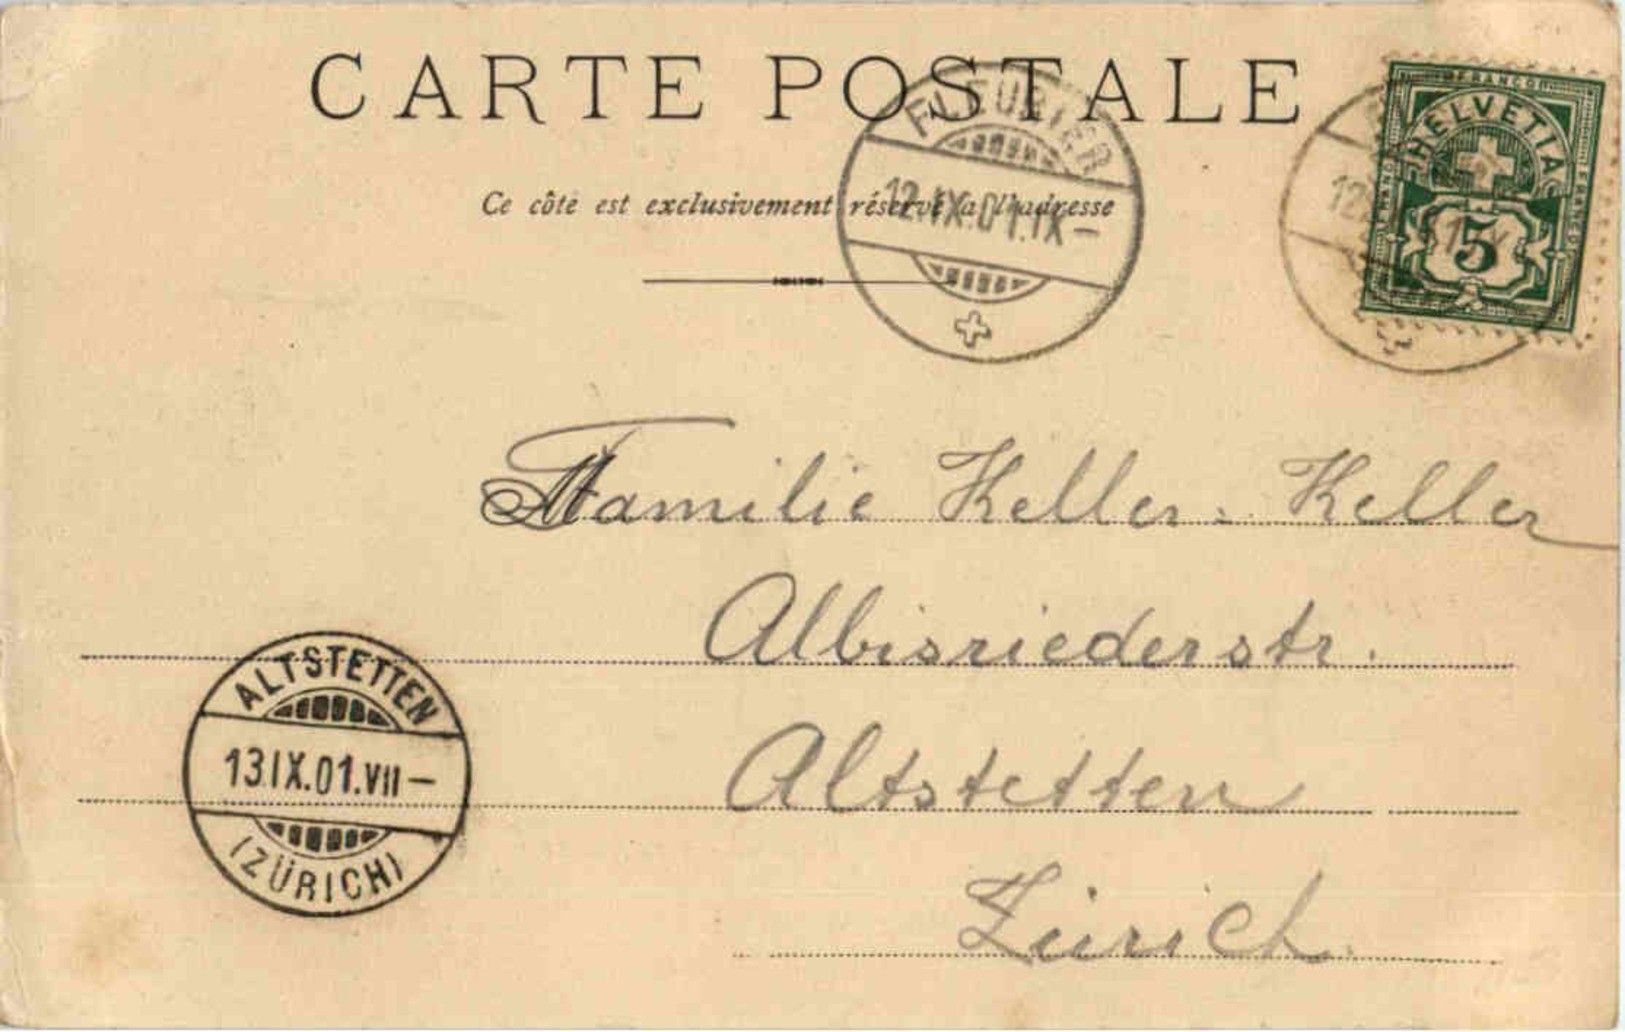 CARTE POSTALE
Ce côté est exclusivement réservé a l'adresse
FLEURIER
12.IX.01.IX–
FRANCO
HELVETIA
FRANCO
FRANCO
5
12
IX
Familie Keller-Keller
Albisriederstr.
Altstetten
Zürich.
ALTSTETTEN
13IX.01.VII–
(ZÜRICH)